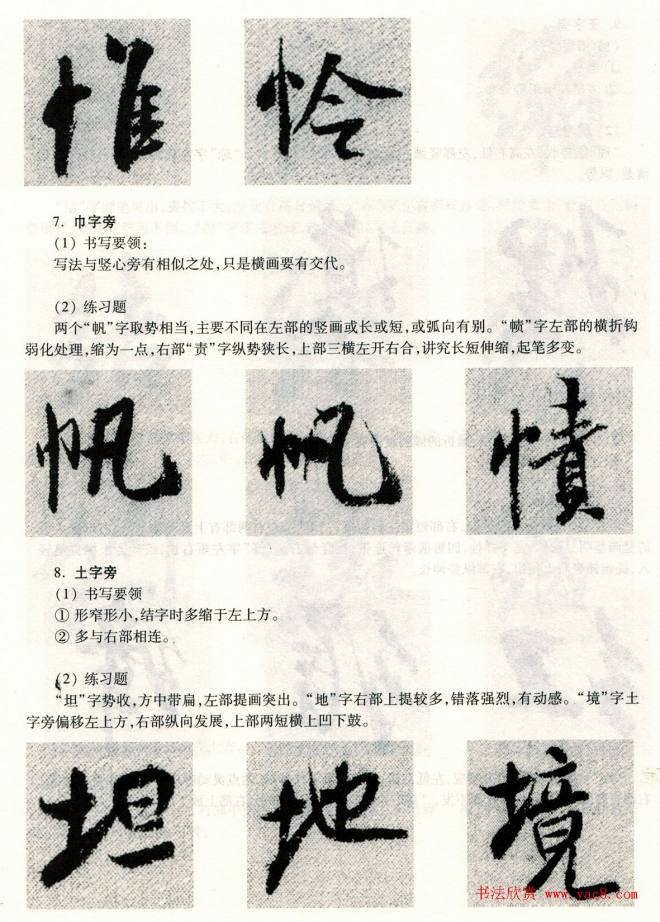 惟 怜
7. 巾字旁
(1) 书写要领:
写法与竖心旁有相似之处,只是横画要有交代。
(2) 练习题
两个“帆”字取势相当,主要不同在左部的竖画或长或短,或弧向有别。“帻”字左部的横折钩
弱化处理,缩为一点,右部“责”字纵势狭长,上部三横左开右合,讲究长短伸缩,起笔多变。
帆 帆 幘
8. 土字旁
(1) 书写要领
① 形窄形小,结字时多缩于左上方。
② 多与右部相连。
(2) 练习题
“坦”字势收,方中带扁,左部提画突出。“地”字右部上提较多,错落强烈,有动感。“境”字土
字旁偏移左上方,右部纵向发展,上部两短横上凹下鼓。
坦 地 境
书法欣赏 www.yac8.com